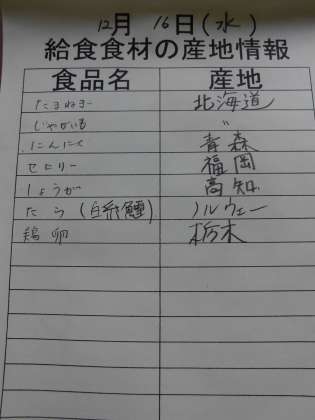 12月 16日(水)
給食食材の産地情報
食品名 産地
たまねぎ 北海道
じゃがいも 〃
にんにく 青森
セロリー 福岡
しょうが 高知
たら(白糸鱈) ノルウェー
鶏卵 栃木